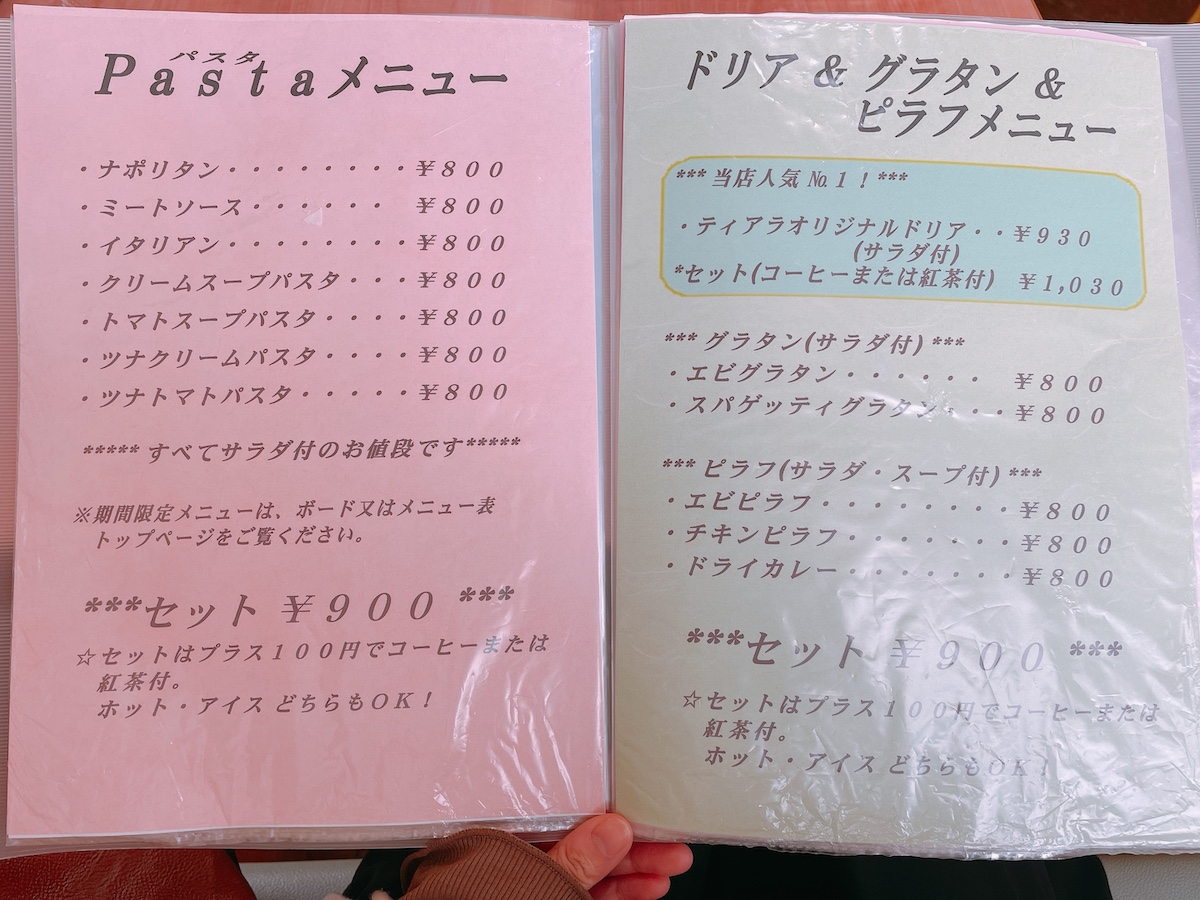 パスタ
Pastaメニュー
・ナポリタン・・・・・・・・・¥800
・ミートソース・・・・・・ ¥800
・イタリアン・・・・・・・・・¥800
・クリームスープパスタ・・・¥800
・トマトスープパスタ・・・・¥800
・ツナクリームパスタ・・・・¥800
・ツナトマトパスタ・・・・・¥800
***** すべてサラダ付のお値段です*****
※期間限定メニューは、ボード又はメニュー表
トップページをご覧ください。
***セット ¥900 ***
☆セットはプラス100円でコーヒーまたは
紅茶付。
ホット・アイス どちらもOK！
ドリア & グラタン &
ピラフメニュー
*** 当店人気 №1！***
・ティアラオリジナルドリア・・¥930
(サラダ付)
*セット(コーヒーまたは紅茶付) ¥1,030
*** グラタン(サラダ付) ***
・エビグラタン・・・・・・ ¥800
・スパゲッティグラタン・・・¥800
*** ピラフ(サラダ・スープ付) ***
・エビピラフ・・・・・・・・¥800
・チキンピラフ・・・・・・・¥800
・ドライカレー・・・・・・・¥800
***セット ¥900 ***
☆セットはプラス100円でコーヒーまたは
紅茶付。
ホット・アイス どちらもOK！